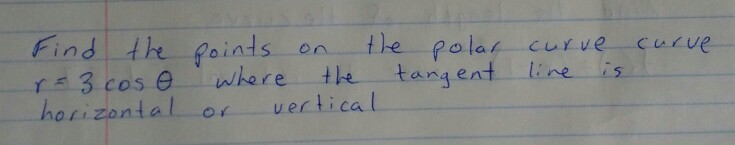 Find the points on the polar curve curve
r = 3 cos θ where the tangent line is
horizontal or vertical